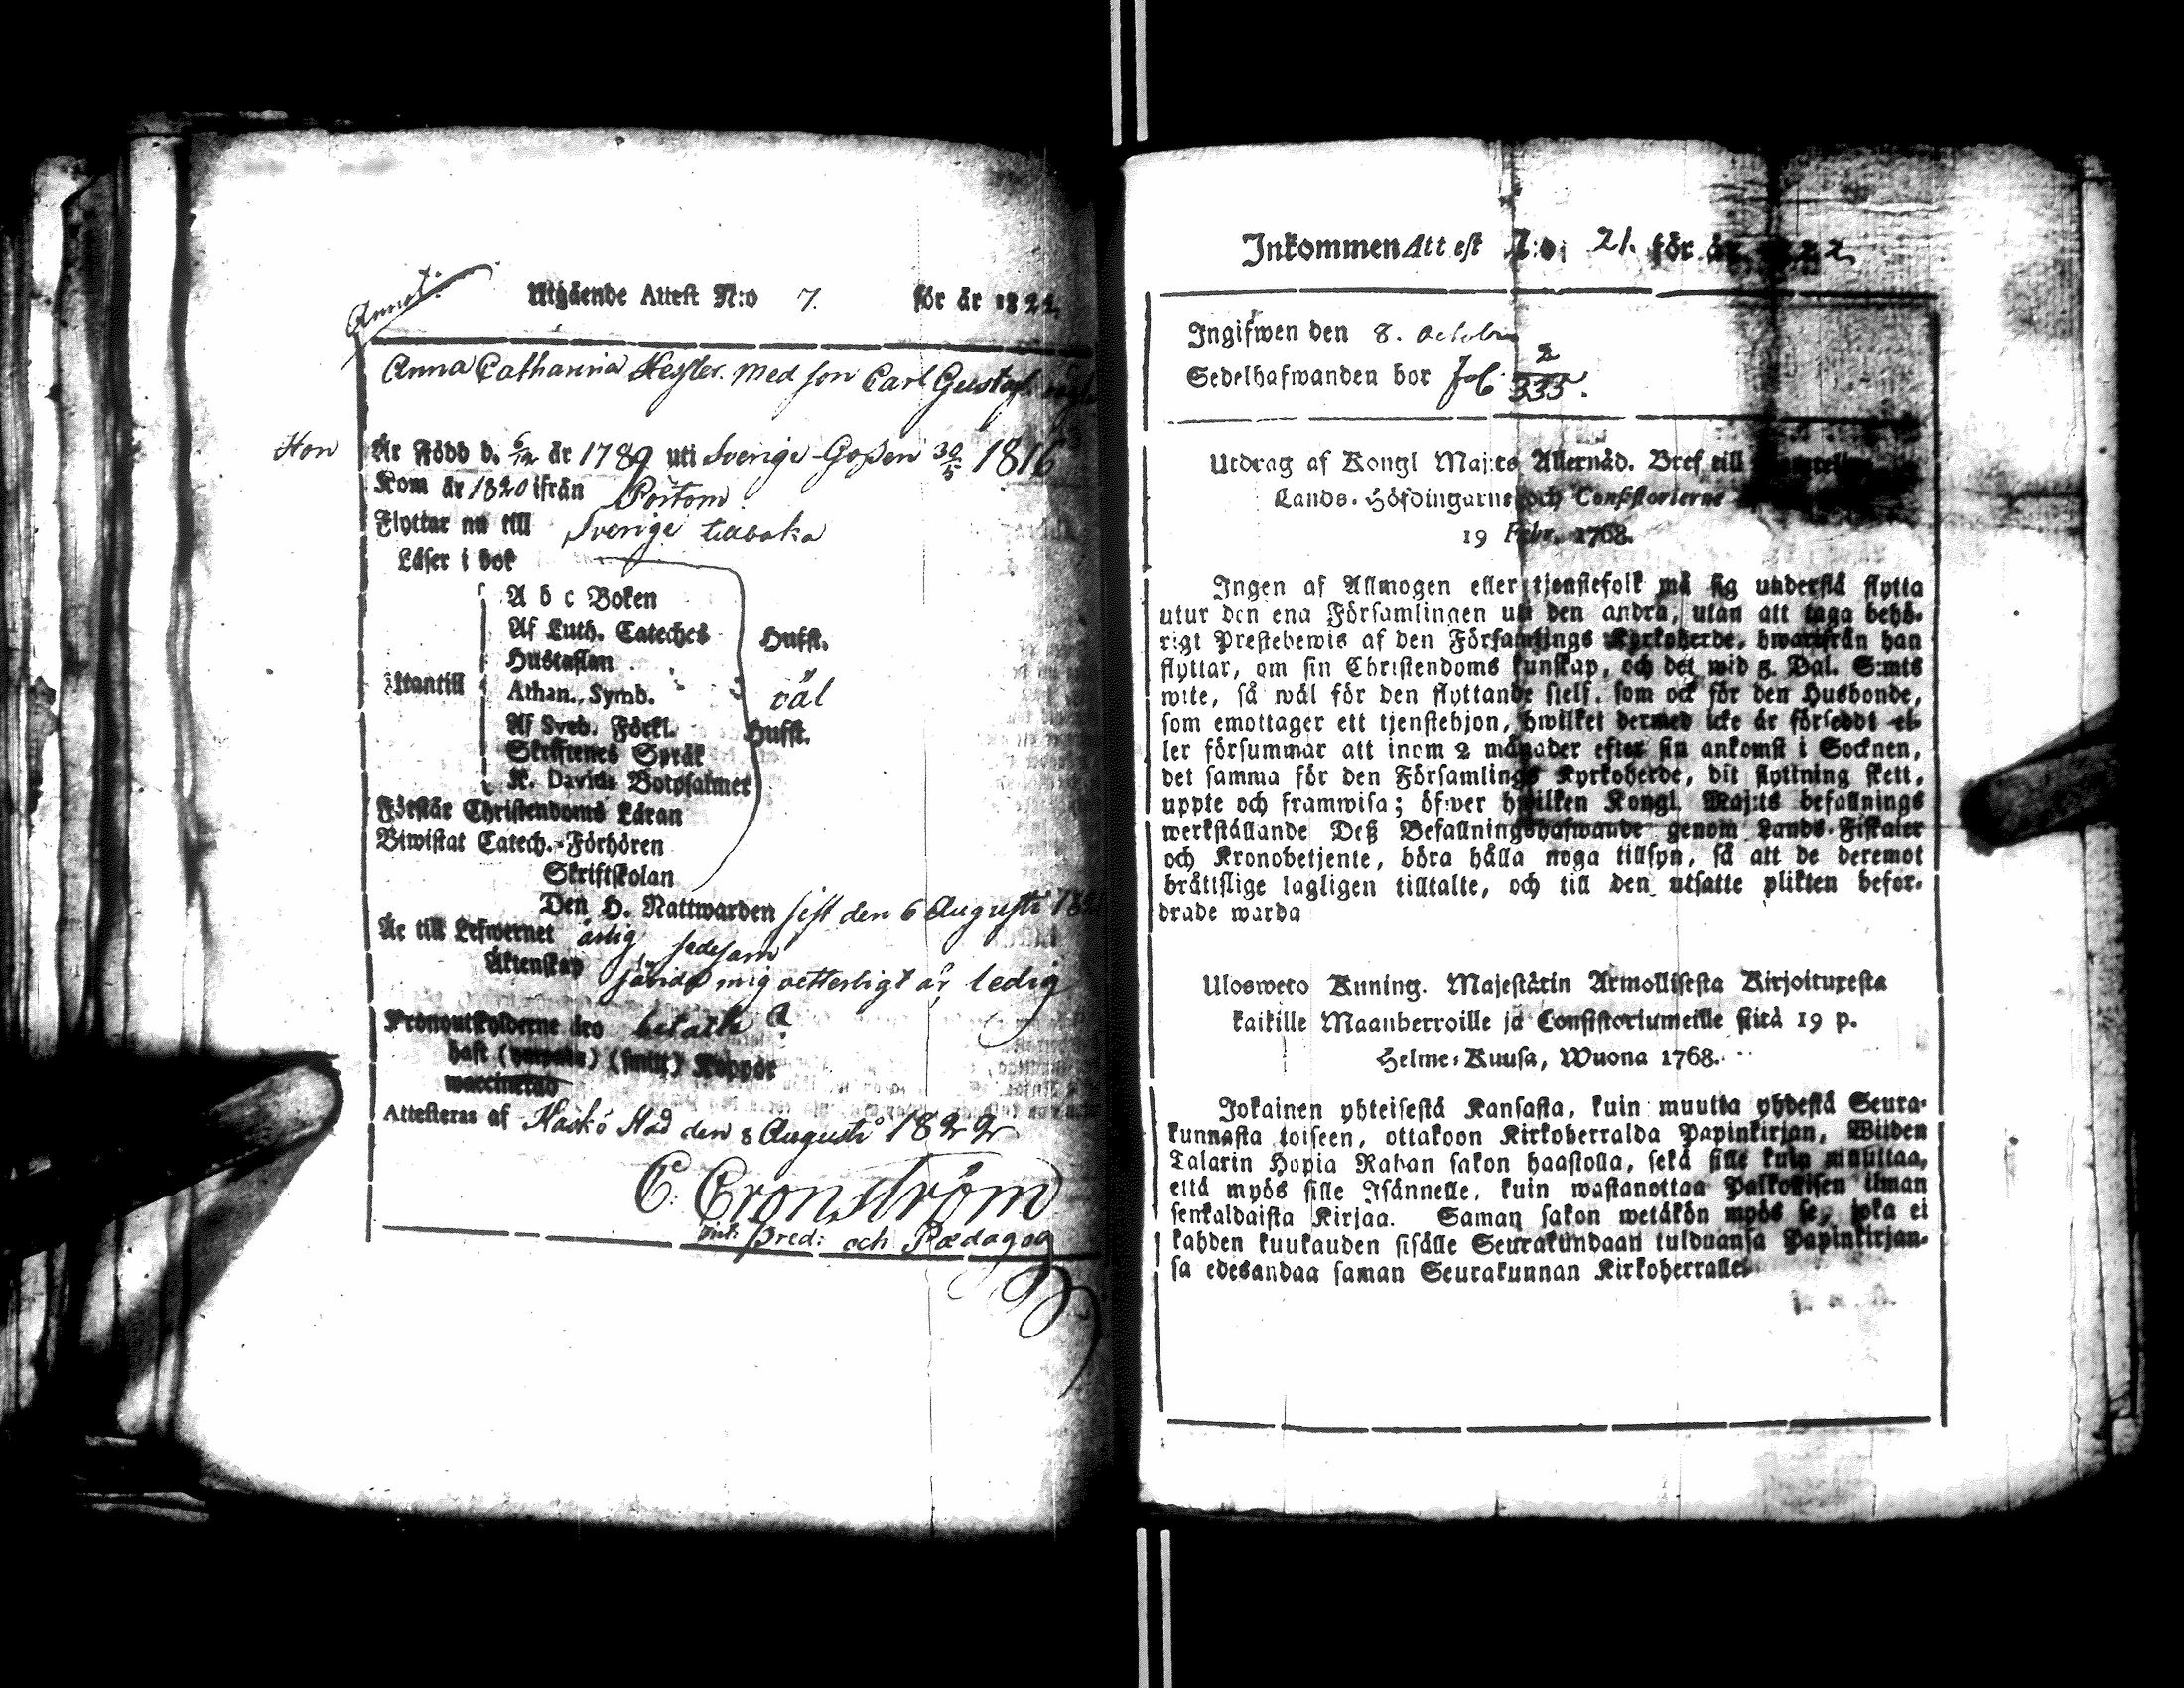 Annot:
Utgående Attest N:o 7. för år 1822.
Anna Catharina Hesler. med son Carl Gustaf
Hon
Är Född d. 6/12 år 1789 uti Sverige Gossen 30/5 1816
Kom år 1820 ifrån Pörtom.
Flyttar nu till Sverige tillbaka
Läser i bok
A b c Boken
Af Luth. Cateches
Hufst.
Hustaflan
Utantill
Athan. Symb.
väl
Af Sveb. Förkl.
Hufst.
Skriftenes Språk
K. Davids Botpsalmer
Förstår Christendoms Läran
Biwistat Catech.-Förhören
Skriftskolan
Den H. Nattwarden sist den 6 Augusti
Är till Lefwernet ärlig, sedesam
Äktenskap mig vetterligt är ledig
Kronoutskylderne äro betalte
haft (smitt) Koppor
waccinerad
Attesteras af Kaskö Stad den 8 Augusti 1822
C: Cronström
Pred: och Pædagog
Inkommen Attest N:o 21. för år 1822
Ingifwen den 8. October
Sedelhafwanden bor fol. 2/335.
Utdrag af Kongl Maj:ts Allernåd. Bref till
Lands-Höfdingarne och Consistorierne
19 Febr. 1768.
Ingen af Allmogen eller tjenstefolk må sig understå flytta
utur den ena Församlingen uti den andra, utan att taga behö-
rigt Prestebewis af den Församlings Kyrkoherde, hwarifrån han
flyttar, om sin Christendoms kunskap, och det wid 3. Dal. S:mts
wite, så wäl för den flyttande sielf, som ock för den Husbonde,
som emottager ett tjenstehjon, hwilket dermed icke är försedt el-
ler försummar att inom 2 månader efter sin ankomst i Socknen,
det samma för den Församlings Kyrkoherde, dit flyttning skett,
uppte och framwisa; öfwer hwilken Kongl. Maj:ts befallnings
werkställande Deß Befallningshafwande genom Lands-Fiskaler
och Kronobetjente, böra hålla noga tillsyn, så att de deremot
bråttslige lagligen tilltalte, och till den utsatte plikten befor-
drade warda
Ulosweto Kuning. Majestätin Armollisesta Kirjoituxesta
kaikille Maanherroille ja Consistoriumeille siitä 19 p.
Helme-Kuusa, Wuona 1768.
Jokainen yhteisestä Kansasta, kuin muutta yhdestä Seura-
kunnasta toiseen, ottakoon Kirkoherralda Papinkirjan, Wiiden
Talarin Hopia Rahan sakon haastolla, sekä sille kuin muuttaa,
että myös sille Isännelle, kuin wastanottaa Palkollisen ilman
senkaldaista Kirjaa. Saman sakon wetäkön myös se, joka ei
kahden kuukauden sisälle Seurakundaan tulduansa Papinkirjan-
sa edesandaa saman Seurakunnan Kirkoherralle.